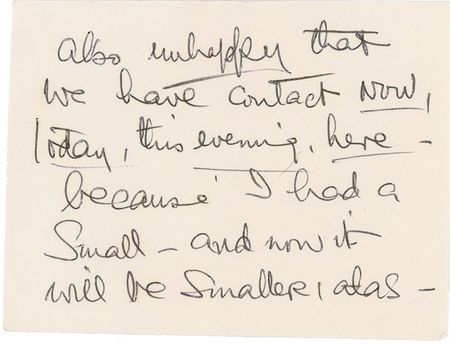 also unhappy that
we have contact now,
today, this evening, here –
because I had a
small – and now it
will be smaller, alas –